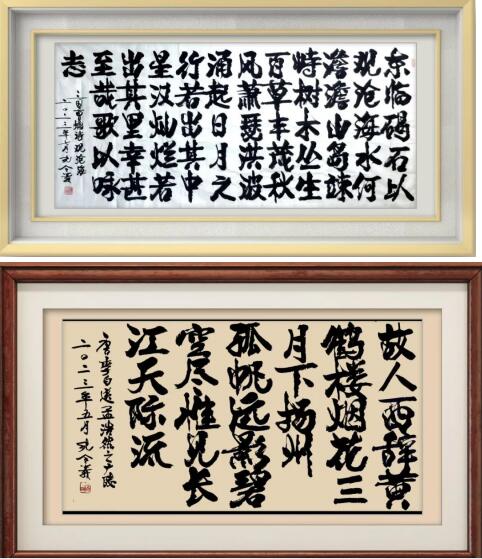 东临碣石以
观沧海水何
澹澹山岛竦
峙树木丛生
百草丰茂秋
风萧瑟洪波
涌起日月之
行若出其中
星汉灿烂若
出其里幸甚
至哉歌以咏
志
三国曹操诗观沧海
二〇二三年七月
故人西辞黄
鹤楼烟花三
月下扬州
孤帆远影碧
空尽惟见长
江天际流
唐李白送孟浩然之广陵
二〇二三年五月